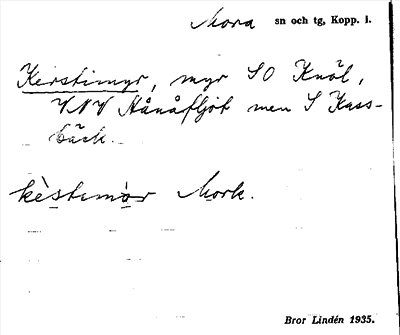 Mora sn och tg, Kopp. l.
Kerstimyr, myr SO Knöl,
VNV Hånåfljót men S Kass-
bäck.
kèstimòr Mork.
Bror Lindén 1935.